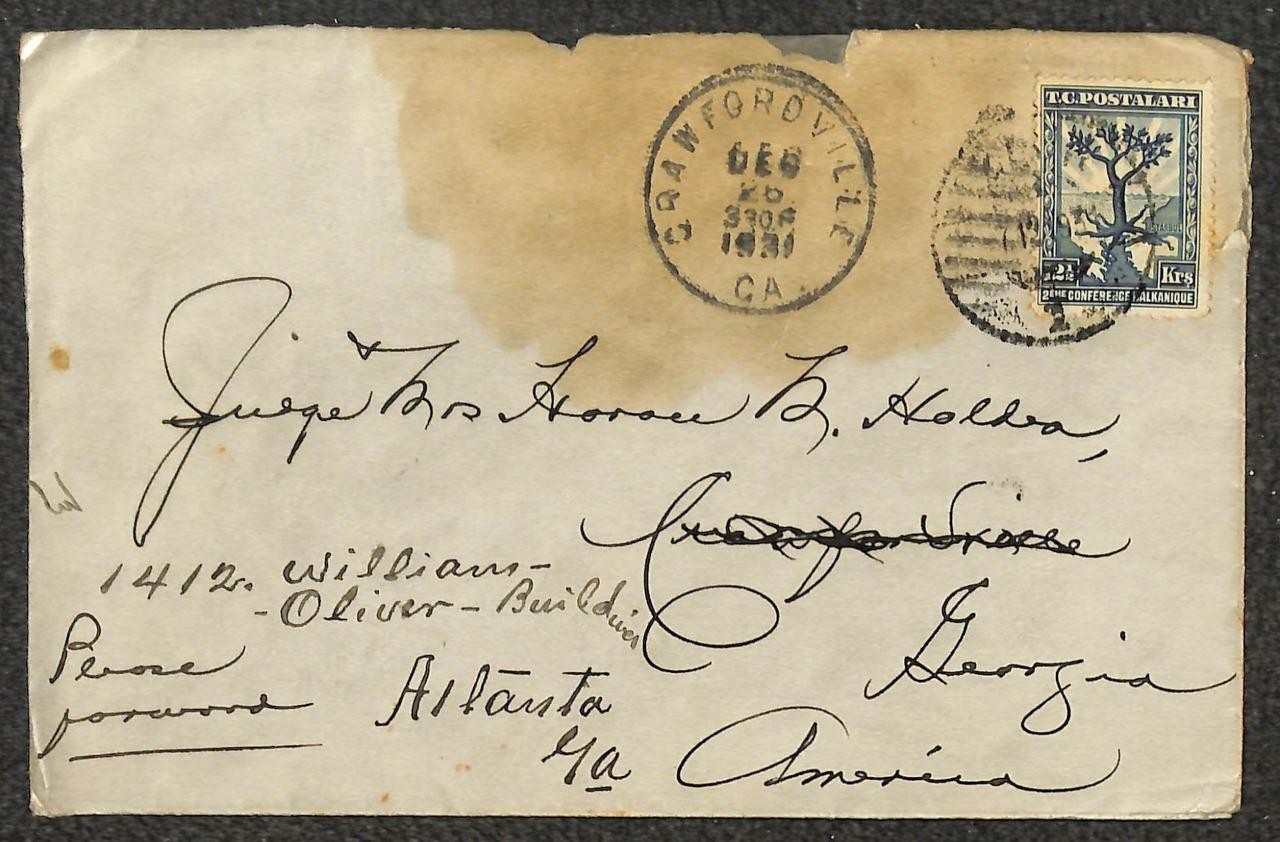 CRAWFORDVILLE
DEC
26
330P
1931
GA.
T.C. POSTALARI
ISTANBUL
2½ Krş
2ÈME CONFÉRENCE BALKANIQUE
Judge & Mrs Horace M. Holden,
Crawfordville
1412. Williams-
-Oliver-Building
Georgia
Please
forward
Atlanta
Ga
America